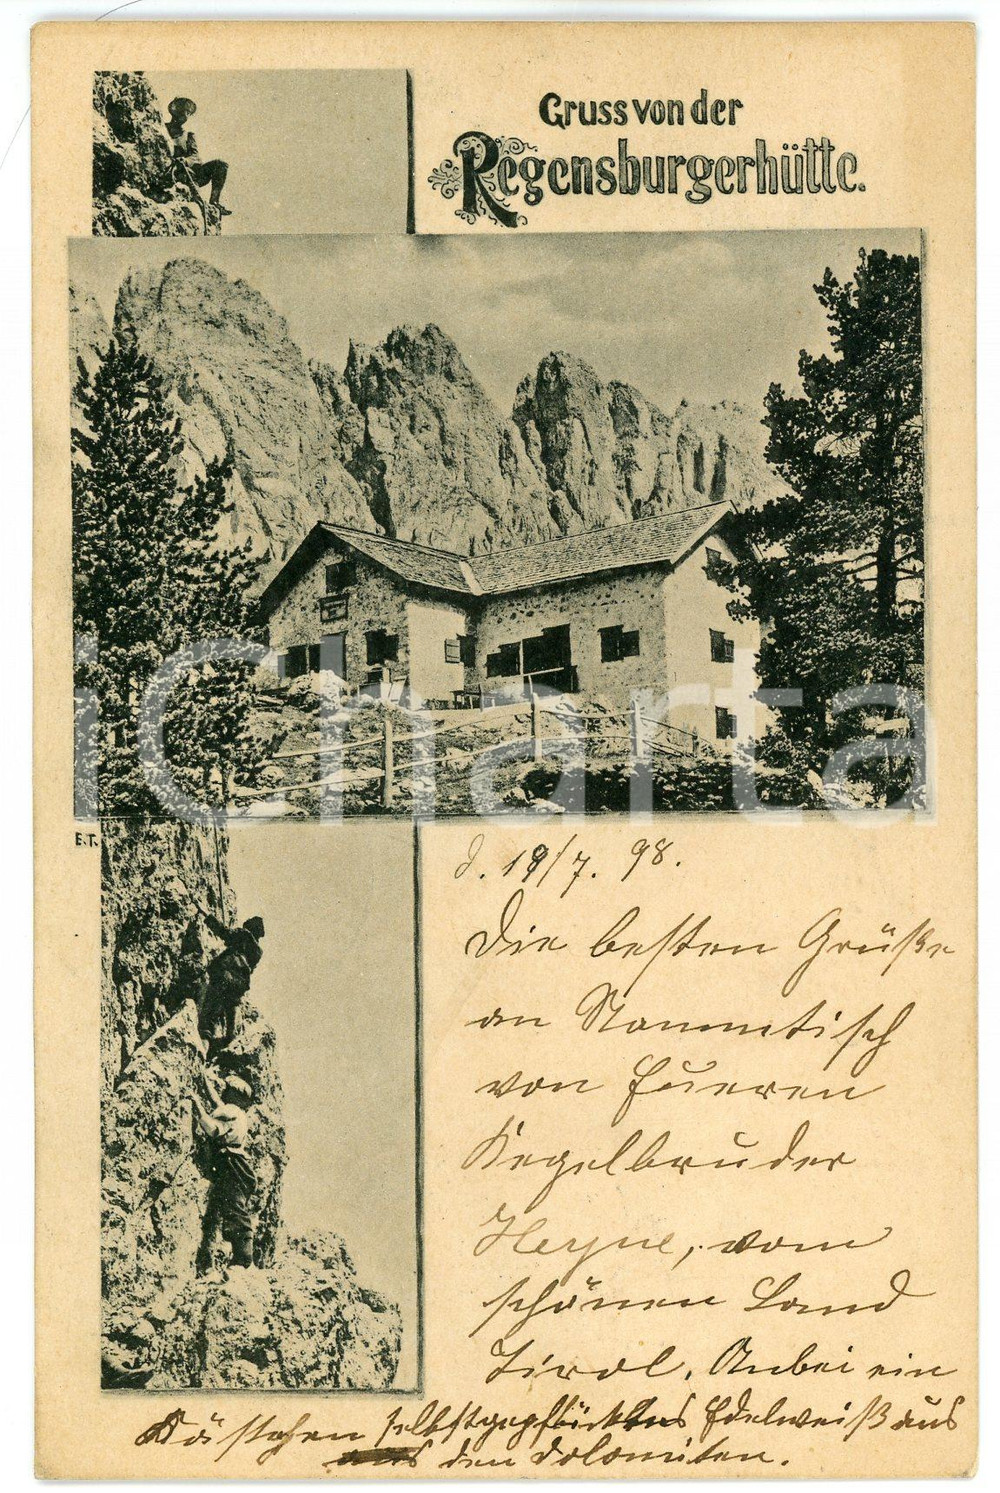 Gruss von der
Regensburgerhütte.
iCharta
E.T.
d. 19/7. 98.
Die besten Grüße
an Stammtisch
von Eueren
Kegelbruder
Heyne, vom
schönen Land
Tirol. Anbei ein
Kästchen selbstgepflücktes Edelweiß aus
den Dolomiten.